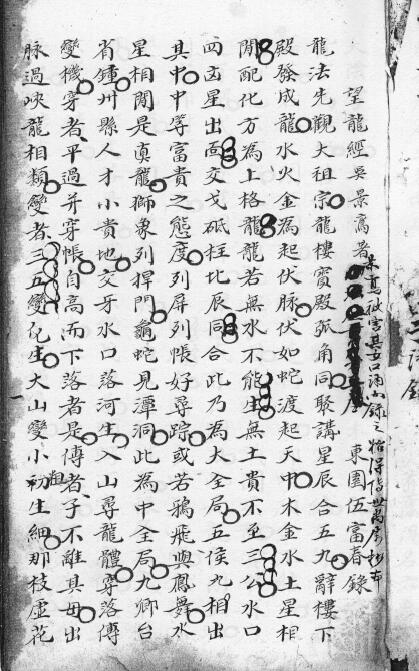 望龍經吳景鸞著
東園伍富春錄
龍法先觀大祖宗龍樓寶殿孤角同聚講星辰合五九辭樓下
殿發成龍水火金為起伏脉伏如蛇渡起天中木金水土星相
間配化方為上格龍龍若無水不能生無土貴不至三公水口
四凶星出面交戈砥柱比辰同合此乃為大全局五侯九相出
其中中等富貴之態度列屏列帳好尋踪或若鴉飛與鳳舞水
星相間是真龍獅象列捍門龜蛇見潭洞此為中全局九卿台
省鍾州縣人才小貴地交牙水口落河生入山尋龍體穿落傳
變機穿者平過并穿帳自高而下落者是傳者子不離其母出
脉過峽龍相類變者三五變化生大山變小初生細那枝虛花